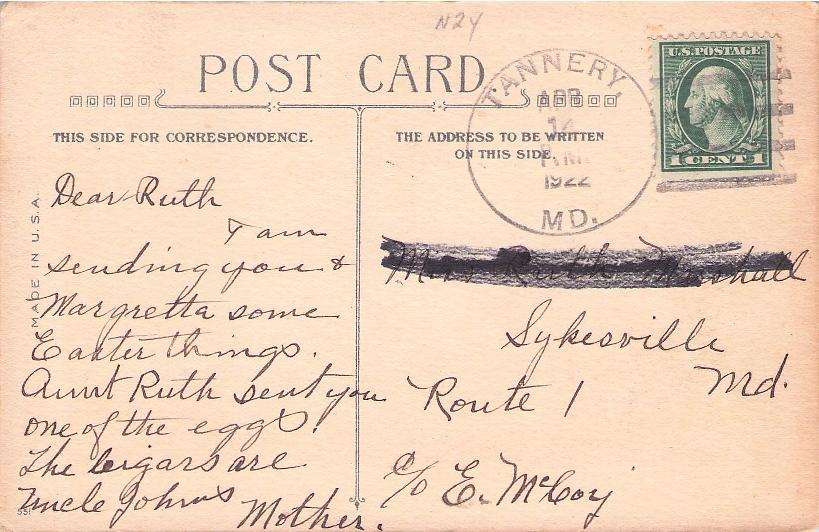 N24
POST CARD
TANNERY,
APR
14
P.M.
1922
MD.
U.S. POSTAGE
1 CENT 1
THIS SIDE FOR CORRESPONDENCE.
THE ADDRESS TO BE WRITTEN
ON THIS SIDE.
MADE IN U.S.A.
Dear Ruth
I am
sending you &
Margretta some
Easter things.
Aunt Ruth sent you
one of the eggs.
The cigars are
Uncle Johns
Mother.
551
Miss Ruth
Sykesville
Md.
Route 1
c/o E. McCoy